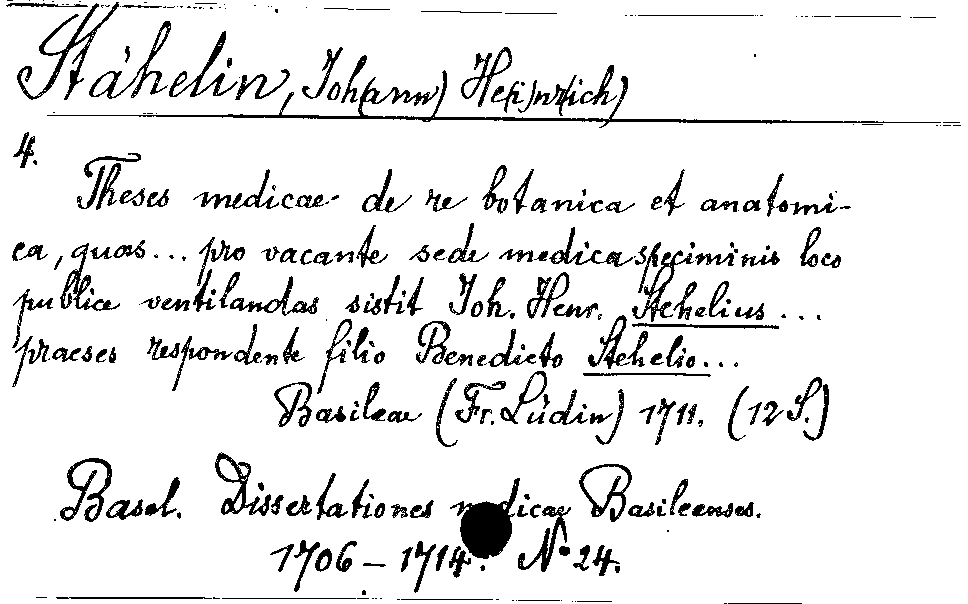 Stähelin, Joh(ann) He(i)nr(ich)
4.
Theses medicae de re botanica et anatomi-
ca, quas... pro vacante sede medica speciminis loco
publice ventilandas sistit Joh. Henr. Stehelius...
praeses respondente filio Benedicto Stehelio...
Basileae (Fr. Lüdin) 1711. (12 S.)
Basel. Dissertationes medicae Basileenses.
1706 - 1714. No 24.